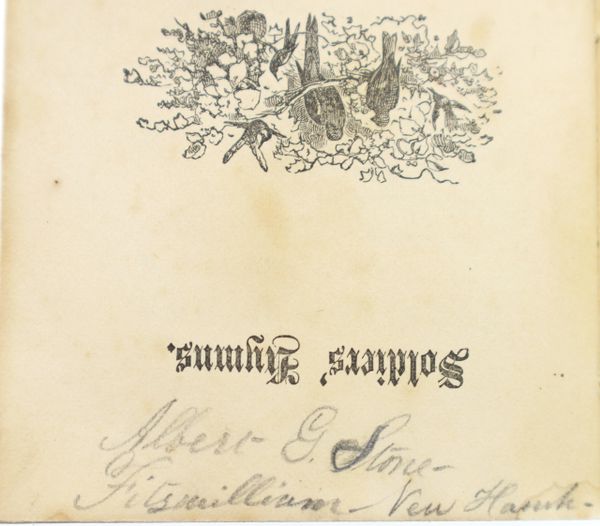 Soldiers' Hymns.
Albert G. Stone-
Fitzwilliam - New Hamh-